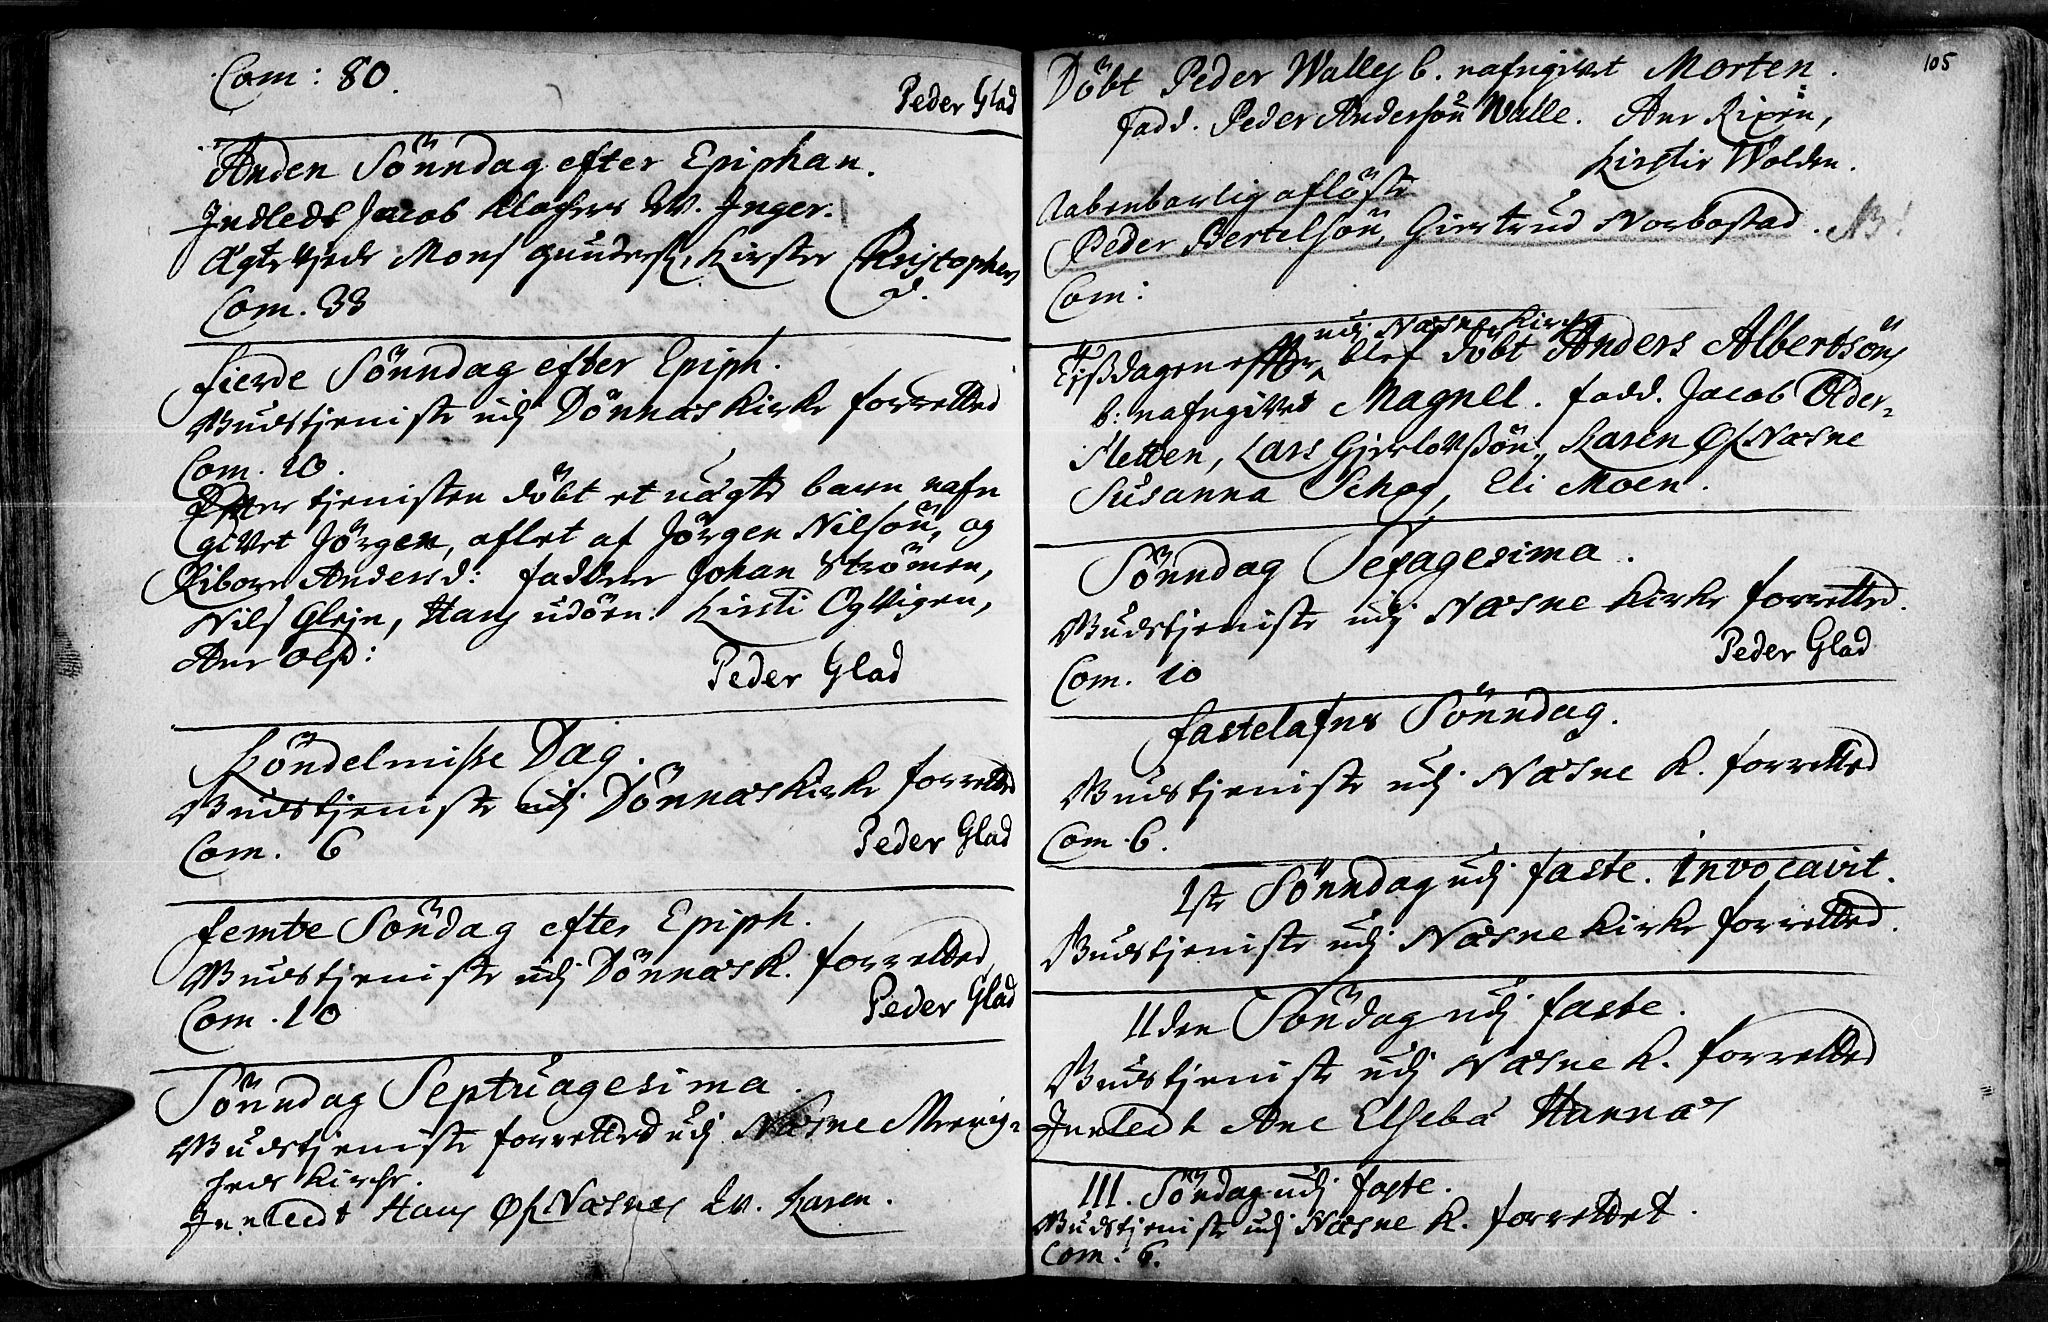 Com: 80.
Peder Glad
Anden Sönndag efter Epiphan.
Indledt Jacob Klachers W. Inger.
Ægteviede Mons Gundersß, Kirsten Christophers
d.
Com. 33
fierde Sönndag efter Epiph.
Gudstjeniste udj Dönnæs Kirke forretted
Com. 10.
Efter tjenisten döbt et uægte barn nafn
givet Jörgen, aflet af Jörgen Nilsön, og
Ribore Andersd: faddere Johan Strömen,
Nils Glejn, Hans udöen: Kirsti Ogvigen,
Ane Olsd:
Peder Glad
Köndelmisse Dag.
Gudstjeniste udj Dönnæs Kirke forretted
Com. 6
Peder Glad
femte Söndag efter Epiph.
Gudstjeniste udj Dönnæs K. forretted
Com. 10
Peder Glad
Sönndag Septuagesima.
Gudstjeniste forretted udj Næsne Menig-
heds Kirche.
Innledt Hans Øf Næsnes Qv. Karen.
105
Döbt Peder Walleys b. nafngivet Morten.
fadd. Peder Andersön Walle. Ane Rixen,
Kirstie Wolden.
Aabenbarlig aflöste
Peder Bertelsön, Giertrud Norbostad. NB!
Com:
udj Næsne Kirche
Tißdagen effter blef döbt Anders Albertsöns
b: nafngivet Magnel. fadd. Jacob Older-
fletten, Lars Gjerlovßön, Karen Øf Næsne
Susanna Schog, Eli Moen.
Sönndag Sexagesima.
Gudstjeniste udj Næsne Kirke forretted.
Com. 10
Peder Glad
fastelafns Sönndag.
Gudstjeniste udj Næsne K. forretted
Com. 6.
1ste Sönndag udj faste. Invocavit.
Gudstjeniste udj Næsne Kirke forretted.
IIden Söndag udj faste.
Gudstjeniste udj Næsne K. forretted
Innledt Ane Elseba Hannæs
III. Söndag udj faste.
Gudstjeniste udj Næsne K. forrettet.
Com. 6.